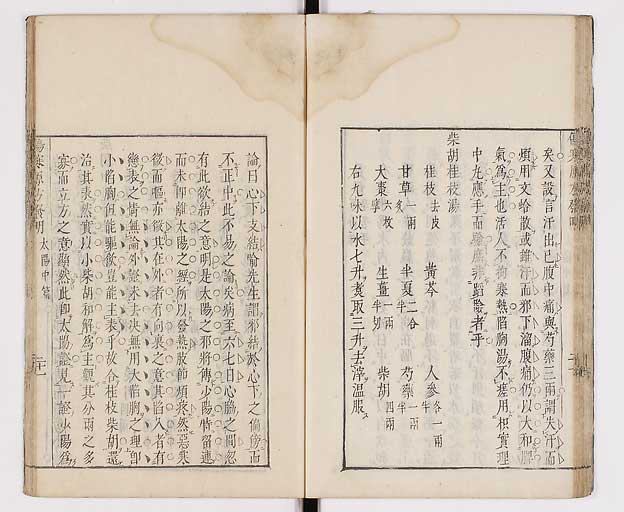 矣又設言汗出已腹中痛與芍藥三兩謂失汗而
煩用文蛤散或雖汗而邪下溜腹痛仍以大和脾
氣爲主也活人不拘寒熱陷胸湯不瘥用枳實理
中丸應手而
者乎
柴胡桂枝湯
桂枝去皮 黃芩 人參各一兩半
甘草一兩炙 半夏二合半 芍藥一兩半
大棗六枚擘 生薑一兩半切 柴胡四兩
右九味以水七升煮取三升去滓溫服
論曰心下支結喻先生謂邪結於心下之偏傍而
不正中此不易之論矣病至六七日心脇之間忽
有此欲結之意明是太陽之邪將傳少陽特留連
而未即離太陽之經所以發熱肢節煩疼然惡寒
微而嘔亦微其在外者有向裏之意其陷入者有
戀表之情無論外證未去決無用大陷胸之理即
小陷胸但能驅飲豈能主表乎故合桂枝柴胡還
治其表然實以小柴胡和解爲主觀其分兩之多
寡而立方之意顯然此即太陽證見一證少陽爲
太陽中篇